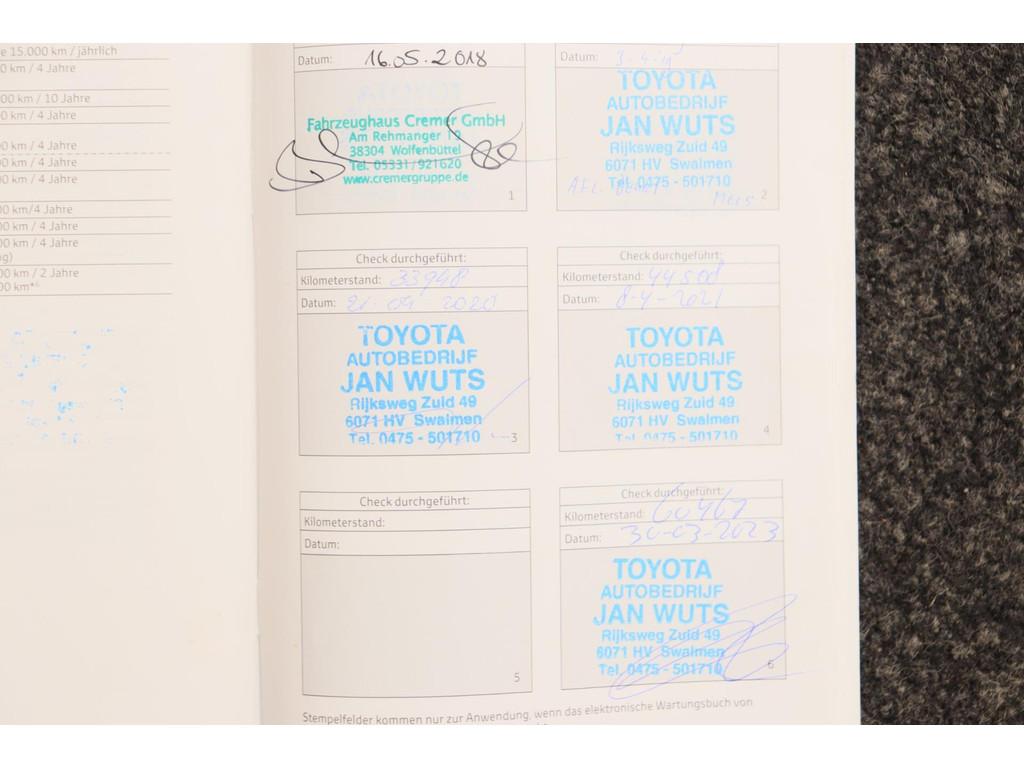 e 15.000 km / jährlich
0 km / 4 Jahre
00 km / 10 Jahre
0 km / 4 Jahre
00 km / 4 Jahre
00 km / 4 Jahre
0 km / 4 Jahre
00 km/4 Jahre
00 km / 4 Jahre
00 km / 4 Jahre
g)
00 km / 2 Jahre
00 km*⁶
Datum: 16.05.2018
Fahrzeughaus Cremer GmbH
Am Rehmanger 10
38304 Wolfenbüttel
Tel. 05331/921620
www.cremergruppe.de
1
Datum:
TOYOTA
AUTOBEDRIJF
JAN WUTS
Rijksweg Zuid 49
6071 HV Swalmen
Tel. 0475 - 501710
2
Check durchgeführt:
Kilometerstand: 33948
Datum: 21-09 2020
TOYOTA
AUTOBEDRIJF
JAN WUTS
Rijksweg Zuid 49
6071 HV Swalmen
Tel. 0475 - 501710
3
Check durchgeführt:
Kilometerstand: 44508
Datum: 8-4-2021
TOYOTA
AUTOBEDRIJF
JAN WUTS
Rijksweg Zuid 49
6071 HV Swalmen
Tel. 0475 - 501710
4
Check durchgeführt:
Kilometerstand:
Datum:
5
Check durchgeführt:
Kilometerstand: 60467
Datum: 30-03-2023
TOYOTA
AUTOBEDRIJF
JAN WUTS
Rijksweg Zuid 49
6071 HV Swalmen
Tel. 0475 - 501710
6
Stempelfelder kommen nur zur Anwendung, wenn das elektronische Wartungsbuch von